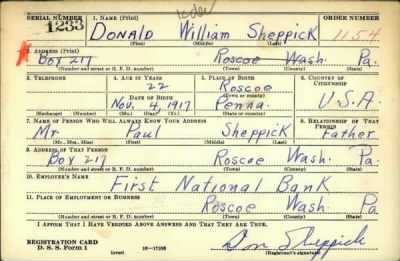 SERIAL NUMBER 1. NAME (Print) ORDER NUMBER
1233 DONALD William Sheppick 1154
(First) (Middle) (Last)
2. ADDRESS (Print)
Box 217 Roscoe Wash. Pa.
(Number and street or R. F. D. number) (Town) (County) (State)
3. TELEPHONE 4. AGE IN YEARS 5. PLACE OF BIRTH 6. COUNTRY OF CITIZENSHIP
22 Roscoe
(Town or county)
DATE OF BIRTH
Nov. 4, 1917 Penna. U.S.A.
(Exchange) (Number) (Mo.) (Day) (Yr.) (State or country)
7. NAME OF PERSON WHO WILL ALWAYS KNOW YOUR ADDRESS 8. RELATIONSHIP OF THAT PERSON
Mr. Paul Sheppick Father
(Mr., Mrs., Miss) (First) (Middle) (Last)
9. ADDRESS OF THAT PERSON
Box 217 Roscoe Wash. Pa.
(Number and street or R. F. D. number) (Town) (County) (State)
10. EMPLOYER'S NAME
First National Bank
11. PLACE OF EMPLOYMENT OR BUSINESS
Roscoe Wash. Pa.
(Number and street or R. F. D. number) (Town) (County) (State)
I AFFIRM THAT I HAVE VERIFIED ABOVE ANSWERS AND THAT THEY ARE TRUE.
REGISTRATION CARD
D. S. S. Form 1 (over) 16-17105 Don Sheppick
(Registrant's signature)